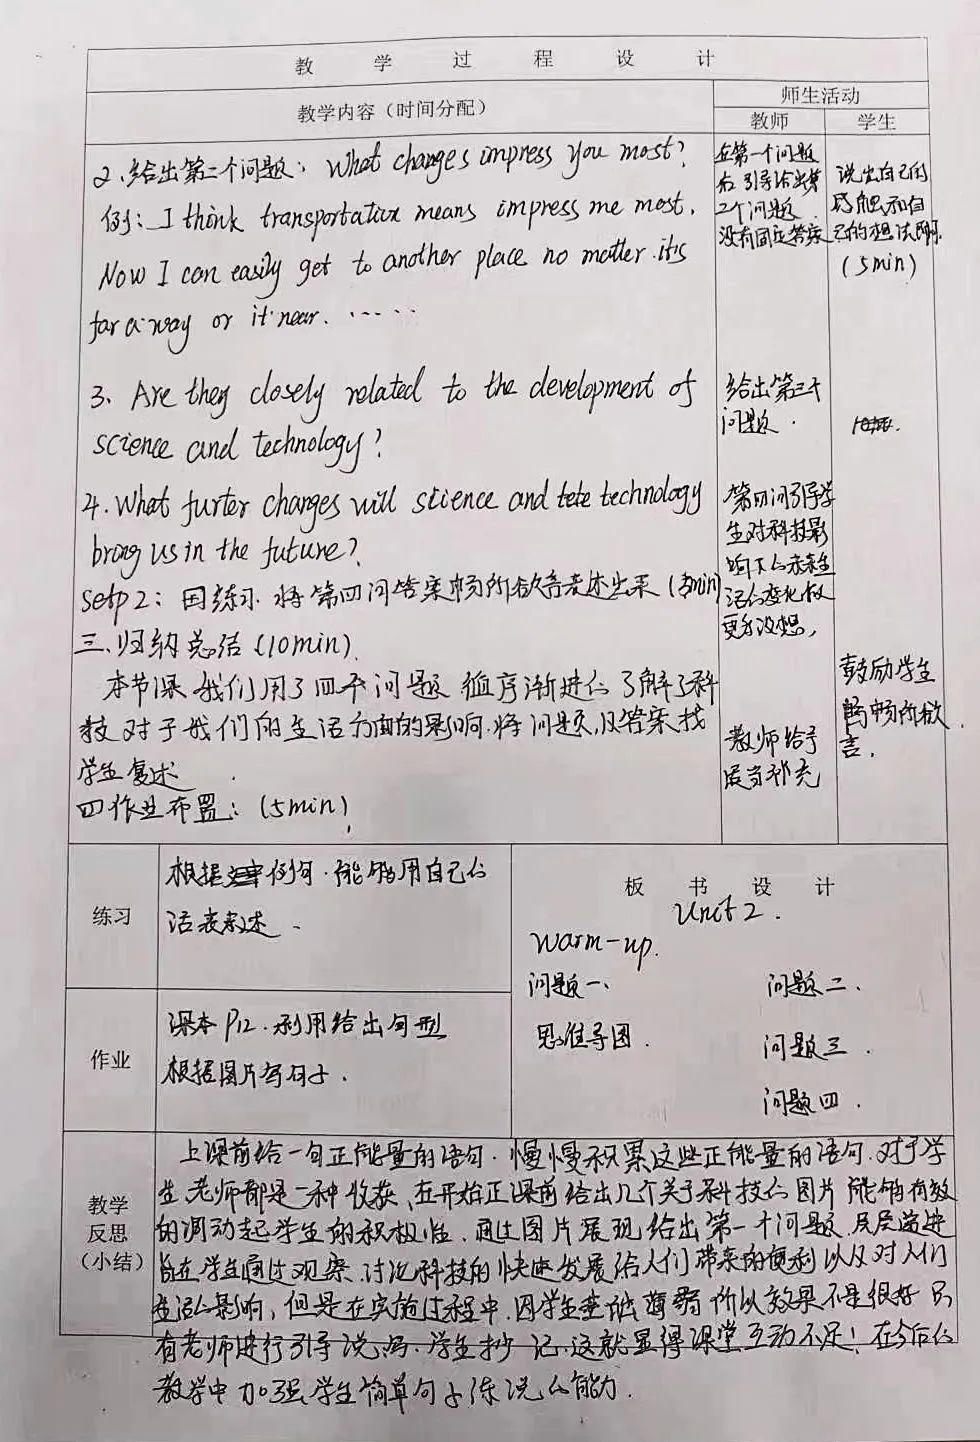 教 学 过 程 设 计
教学内容（时间分配）
师生活动
教师
学生
2、给出第二个问题：What changes impress you most?
例：I think transportation means impress me most.
Now I can easily get to another place no matter it's
far a way or it near. ······
3、Are they closely related to the development of
science and technology?
4. What furter changes will science and technology
brong us in the future?
Setp 2：因练习 将第四问答案畅所欲言表述出来 (5min)
三、归纳总结 (10min)
本节课我们用了四个问题 循序渐进的了解了科
技对于我们的生活方面的影响.将问题及答案找
学生复述
四作业布置：(5min)
在第一个问题
后 引导给出第
二个问题.
没有固定答案
给出第三个
问题.
第四问引导学
生对科技影
响下的未来生
活的变化做
更多设想,
教师给予
适当补充
说出自己的
感触和自
己的想法
(5min)
鼓励学生
畅所欲
言.
练习
根据例句.能够用自己的
话表来述.
作业
课本P12.利用给出句型
根据图片写句子.
板 书 设 计
Unit 2.
Warm-up.
问题一、
问题二.
思维导图.
问题三.
问题四.
教学
反思
（小结）
上课前给一句正能量的语句.慢慢积累这些正能量的语句.对于学
生 老师都是一种收获、在开始正课前给出几个关于科技的图片能够有效
的调动起学生的积极性.通过图片展现给出第一个问题.层层递进
旨在学生通过观察.讨论科技的快速发展给人们带来的便利以及对人们
生活的影响,但是在实施过程中.因学生基础薄弱所以效果不是很好 只
有老师进行引导说、写.学生抄记.这就显得课堂互动不足！在今后的
教学中加强学生简单句子陈说的能力.